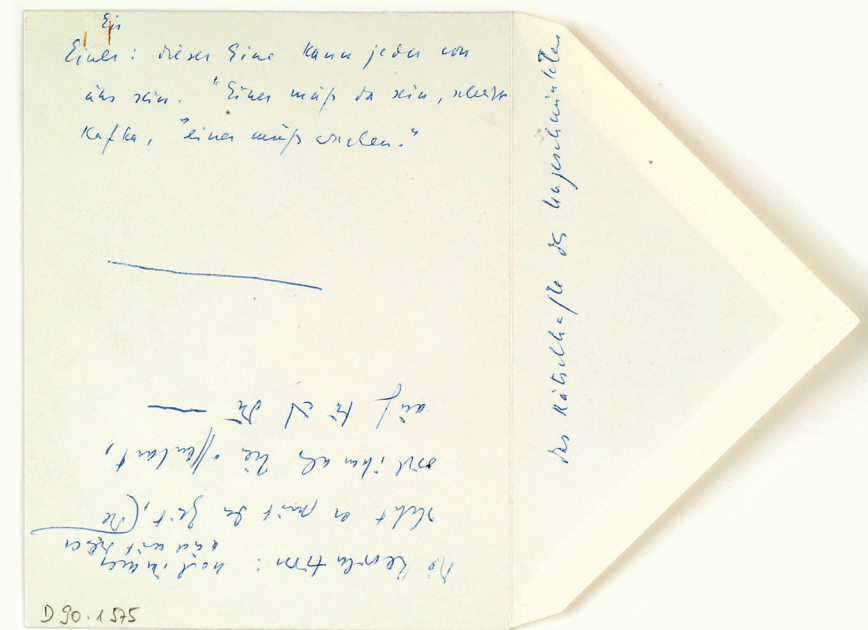 Ein
Einer: dieser Eine kann jeder von
uns sein. "Einer muß da sein, schreibt
Kafka, "einer muß wachen."
Das Rätselhafte des Ungeschminkten
Die Revolution: noch immer
und mit
steht er mit der Zeit, (die
ihm als sie offenbart,
auf
D 90.1.575